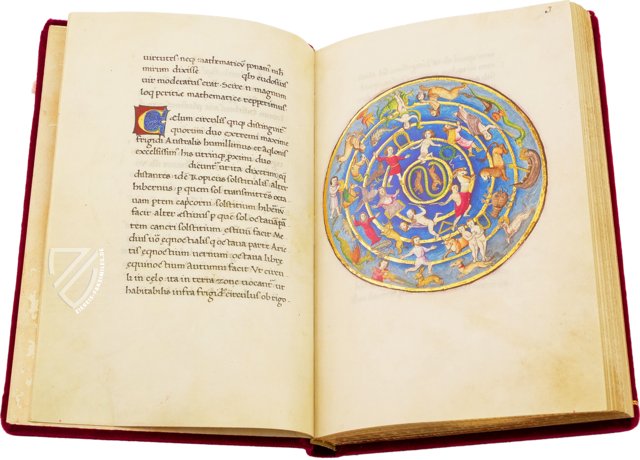 uirtutes neq; mathematicus ponam nih
mirum dixisse qb; eudossus
uir moderatus erat. Scire n̄ magnum
loq peritie mathematice repperimus
Caelum circulis qnq; distinguit̄
quorum duo extremi maxime
frigidi Australis humillimus et aqlonis
excelssimus his utrinq; proximi duo
dicunt̄ ut ita
distantes id ē Tropicus solstitialis alter
hibernus p quem sol transmittens
uam prem capcorni solstitium hibernū
facit alter aestiuus p quē sol octauā
tem cancri solstitium aestiuum facit. Me
dius uō eqnoctialis q octaua parte Arie
tis eqnoctium uernum octaua libre
equinoctium Autumni facit Vt circu
li in celo ita in terra zone uocant̄ ut
habitabilis infra frigidū circulus obrigo
3
ZIEREIS-FAKSIMILES.DE